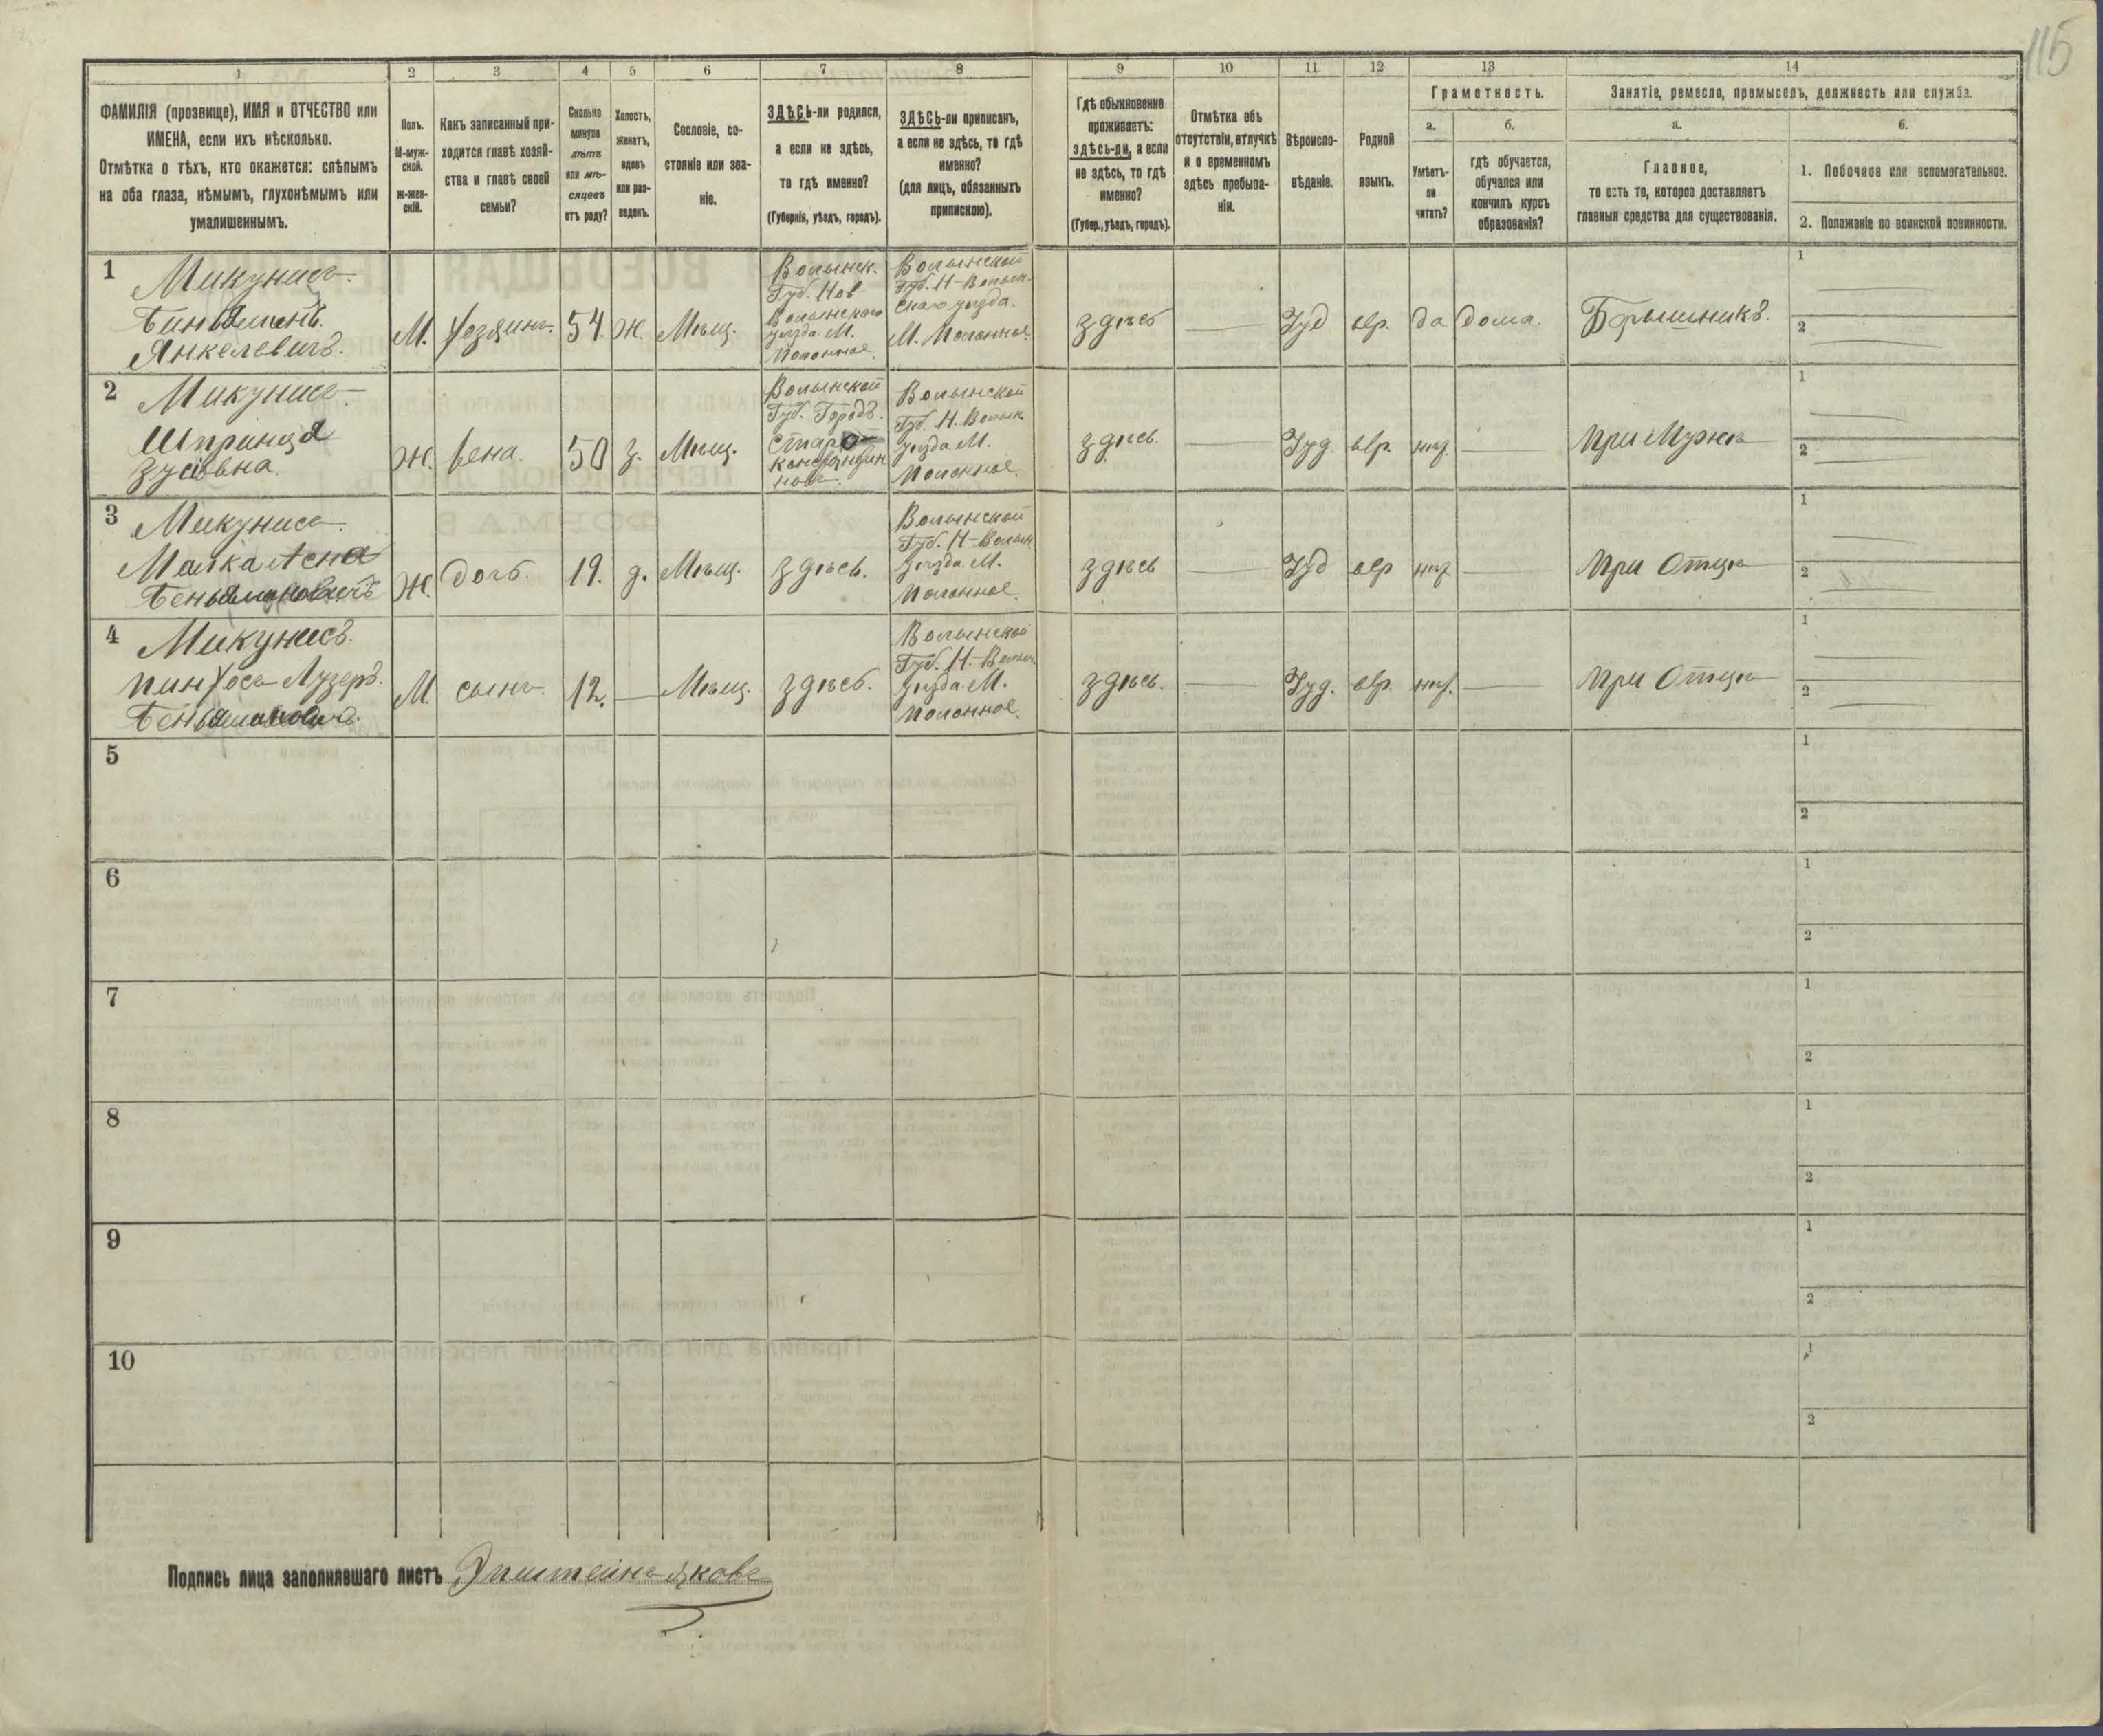 115
1 2 3 4 5 6 7 8 9 10 11 12 13 14
ФАМИЛІЯ (прозвище), ИМЯ и ОТЧЕСТВО или
ИМЕНА, если ихъ нѣсколько.
Отмѣтка о тѣхъ, кто окажется: слѣпымъ
на оба глаза, нѣмымъ, глухонѣмымъ или
умалишеннымъ.
Полъ.
М-муж-
ской.
ж-жен-
скій.
Какъ записанный при-
ходится главѣ хозяй-
ства и главѣ своей
семьи?
Сколько
минуло
лѣтъ
или мѣ-
сяцевъ
отъ роду?
Холостъ,
женатъ,
вдовъ
или раз-
веденъ.
Сословіе, со-
стояніе или зва-
ніе.
ЗДѢСЬ-ли родился,
а если не здѣсь,
то гдѣ именно?
(Губернія, уѣздъ, городъ).
ЗДѢСЬ-ли приписанъ,
а если не здѣсь, то гдѣ
именно?
(для лицъ, обязанныхъ
припискою).
Гдѣ обыкновенно
проживаетъ:
здѣсь-ли, а если
не здѣсь, то гдѣ
именно?
(Губер., уѣздъ, городъ).
Отмѣтка объ
отсутствіи, отлучкѣ
и о временномъ
здѣсь пребыва-
ніи.
Вѣроиспо-
вѣданіе.
Родной
языкъ.
Грамотность.
а.
Умѣетъ-
ли
читать?
б.
гдѣ обучается,
обучался или
кончилъ курсъ
образованія?
Занятіе, ремесло, промыселъ, должность или служба.
а.
Главное,
то есть то, которое доставляетъ
главныя средства для существованія.
б.
1. Побочное или вспомогательное.
2. Положеніе по воинской повинности.
1
Микунисъ
Биньяминъ
Янкелевичъ.
М.
хозяинъ
54
ж.
Мѣщ.
Волынск.
Губ. Нов
Волынскаго
уѣзда М.
Полонное.
Волынской
Губ. Н-Волын-
скаго уѣзда.
М. Полонное.
здѣсь
Іуд
евр.
да
дома.
Барышникъ.
1
2
2
Микунисъ
Шпринца
Зусьевна
Ж.
жена.
50
з.
Мѣщ.
Волынской
Губ. Городъ.
Старо
константи
новъ.
Волынской
Губ. Н. Волын
уѣзда М.
Полонное.
здѣсь.
Іуд.
евр.
нѣт.
При Мужѣ
1
2
3
Микунисъ
Малка
Беньяминовичъ
Ж.
дочь.
19.
д.
Мѣщ.
здѣсь.
Волынской
Губ. Н-Волын
уѣзда М.
Полонное.
здѣсь
Іуд
евр
нѣт
При Отцѣ
1
2
4
Микунисъ.
Пинхосъ Лузеръ.
Беньяминовичъ.
М.
сынъ
12.
Мѣщ.
здѣсь.
Волынской
Губ. Н-Волын.
уѣзда М.
Полонное.
здѣсь.
Іуд.
евр.
нѣт.
При Отцѣ
1
2
5
1
2
6
1
2
7
1
2
8
1
2
9
1
2
10
1
2
Подпись лица заполнявшаго листъ Эпштейнъ Яковъ